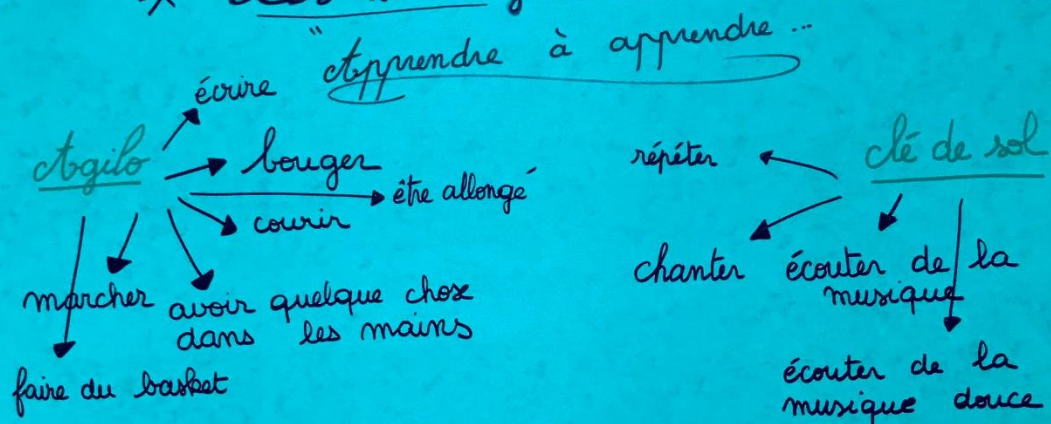 "Apprendre à apprendre...
Agilo
écrire
bouger
être allongé
courir
avoir quelque chose
dans les mains
marcher
faire du basket
clé de sol
répéter
chanter
écouter de la
musique
écouter de la
musique douce